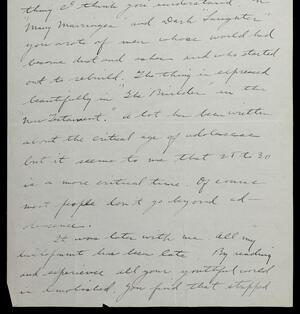 thing I think you understand in
"Many Marriages" and Dark Laughter"
you wrote of men whose world had
become dust and ashes and who started
out to rebuild. The thing is expressed
beautifully in "The Builder in the
New Testament." A lot has been written
about the critical age of adolescence
but it seems to me that 25 to 30
is a more critical time. Of course
most people don't go beyond ad-
olescence.
It was later with me. All my
development has been late By reading
and experience all your youthful world
is demolished. You find that stripped